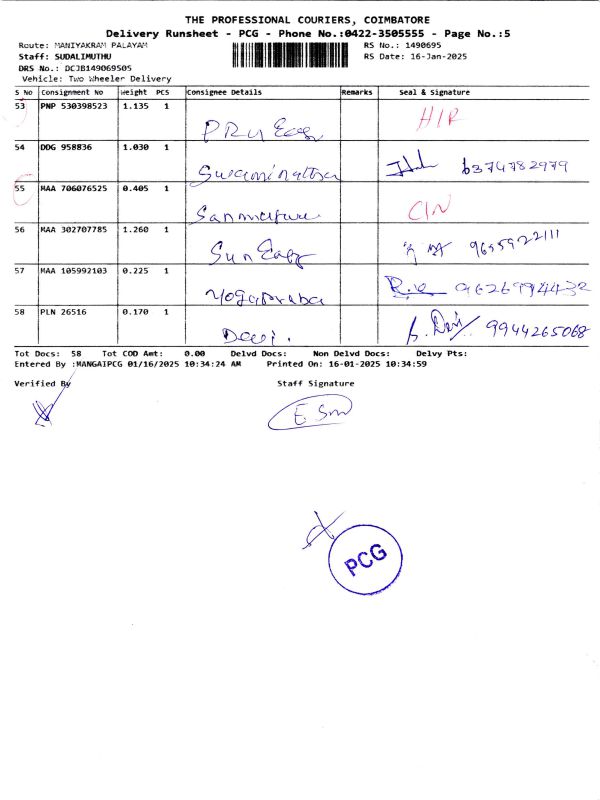 THE PROFESSIONAL COURIERS, COIMBATORE
Delivery Runsheet - PCG - Phone No.:0422-3505555 - Page No.:5
Route: MANIYAKRAM PALAYAM RS No.: 1490695
Staff: SUDALIMUTHU RS Date: 16-Jan-2025
DRS No.: DCJB149069505
Vehicle: Two Wheeler Delivery
S No Consignment No Weight PCS Consignee Details Remarks Seal & Signature
53 PNP 530398523 1.135 1
H/R
54 DDG 958836 1.030 1
Swaminathan 6374782979
55 MAA 706076525 0.405 1
CIN
56 MAA 302707785 1.260 1
9655922111
57 MAA 105992103 0.225 1
Yogapraba 9626994432
58 PLN 26516 0.170 1
Devi. 9944265068
Tot Docs: 58 Tot COD Amt: 0.00 Delvd Docs: Non Delvd Docs: Delvy Pts:
Entered By :MANGAIPCG 01/16/2025 10:34:24 AM Printed On: 16-01-2025 10:34:59
Verified By Staff Signature
PCG